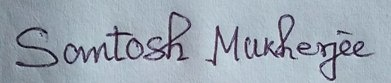 Santosh Mukherjee